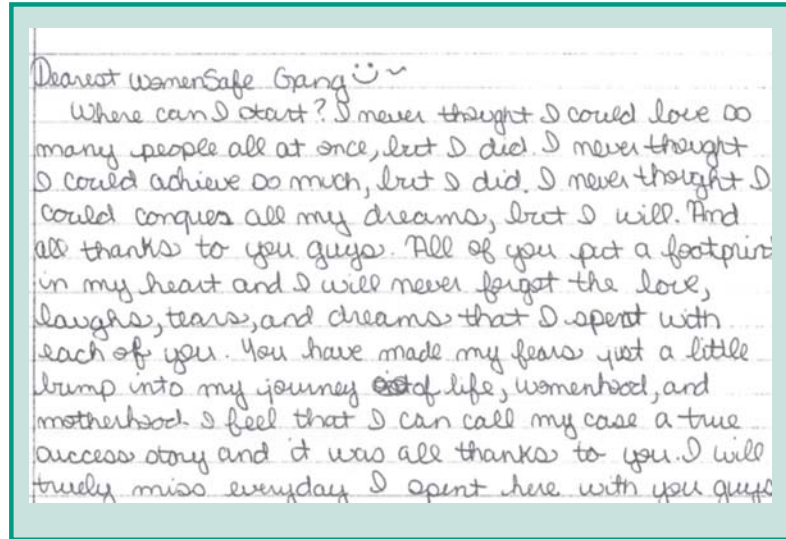 Dearest WomenSafe Gang
Where can I start? I never thought I could love so
many people all at once, but I did. I never thought
I could achieve so much, but I did. I never thought I
could conquer all my dreams, but I will. And
all thanks to you guys. All of you put a footprint
in my heart and I will never forget the love,
laughs, tears, and dreams that I spent with
each of you. You have made my fears just a little
bump into my journey of life, womenhood, and
motherhood. I feel that I can call my case a true
success story and it was all thanks to you. I will
truely miss everyday I spent here with you guys